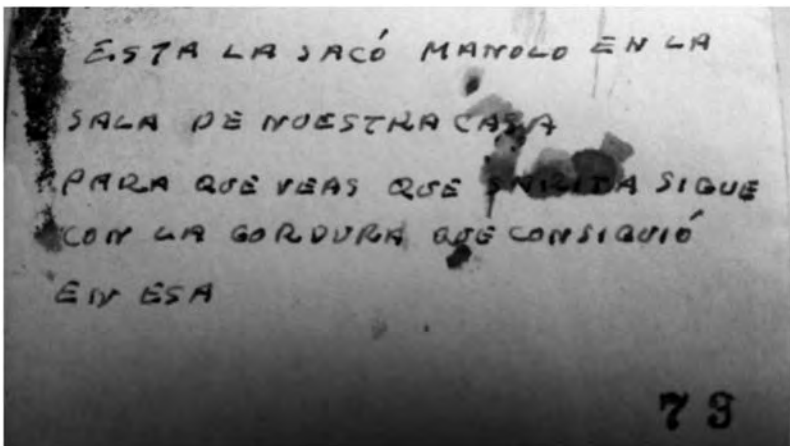 ESTA LA SACÓ MANOLO EN LA
SALA DE NUESTRA CASA
PARA QUE VEAS QUE SIGUE
CON LA GORDURA QUE CONSIGUIÓ
EN ESA
73